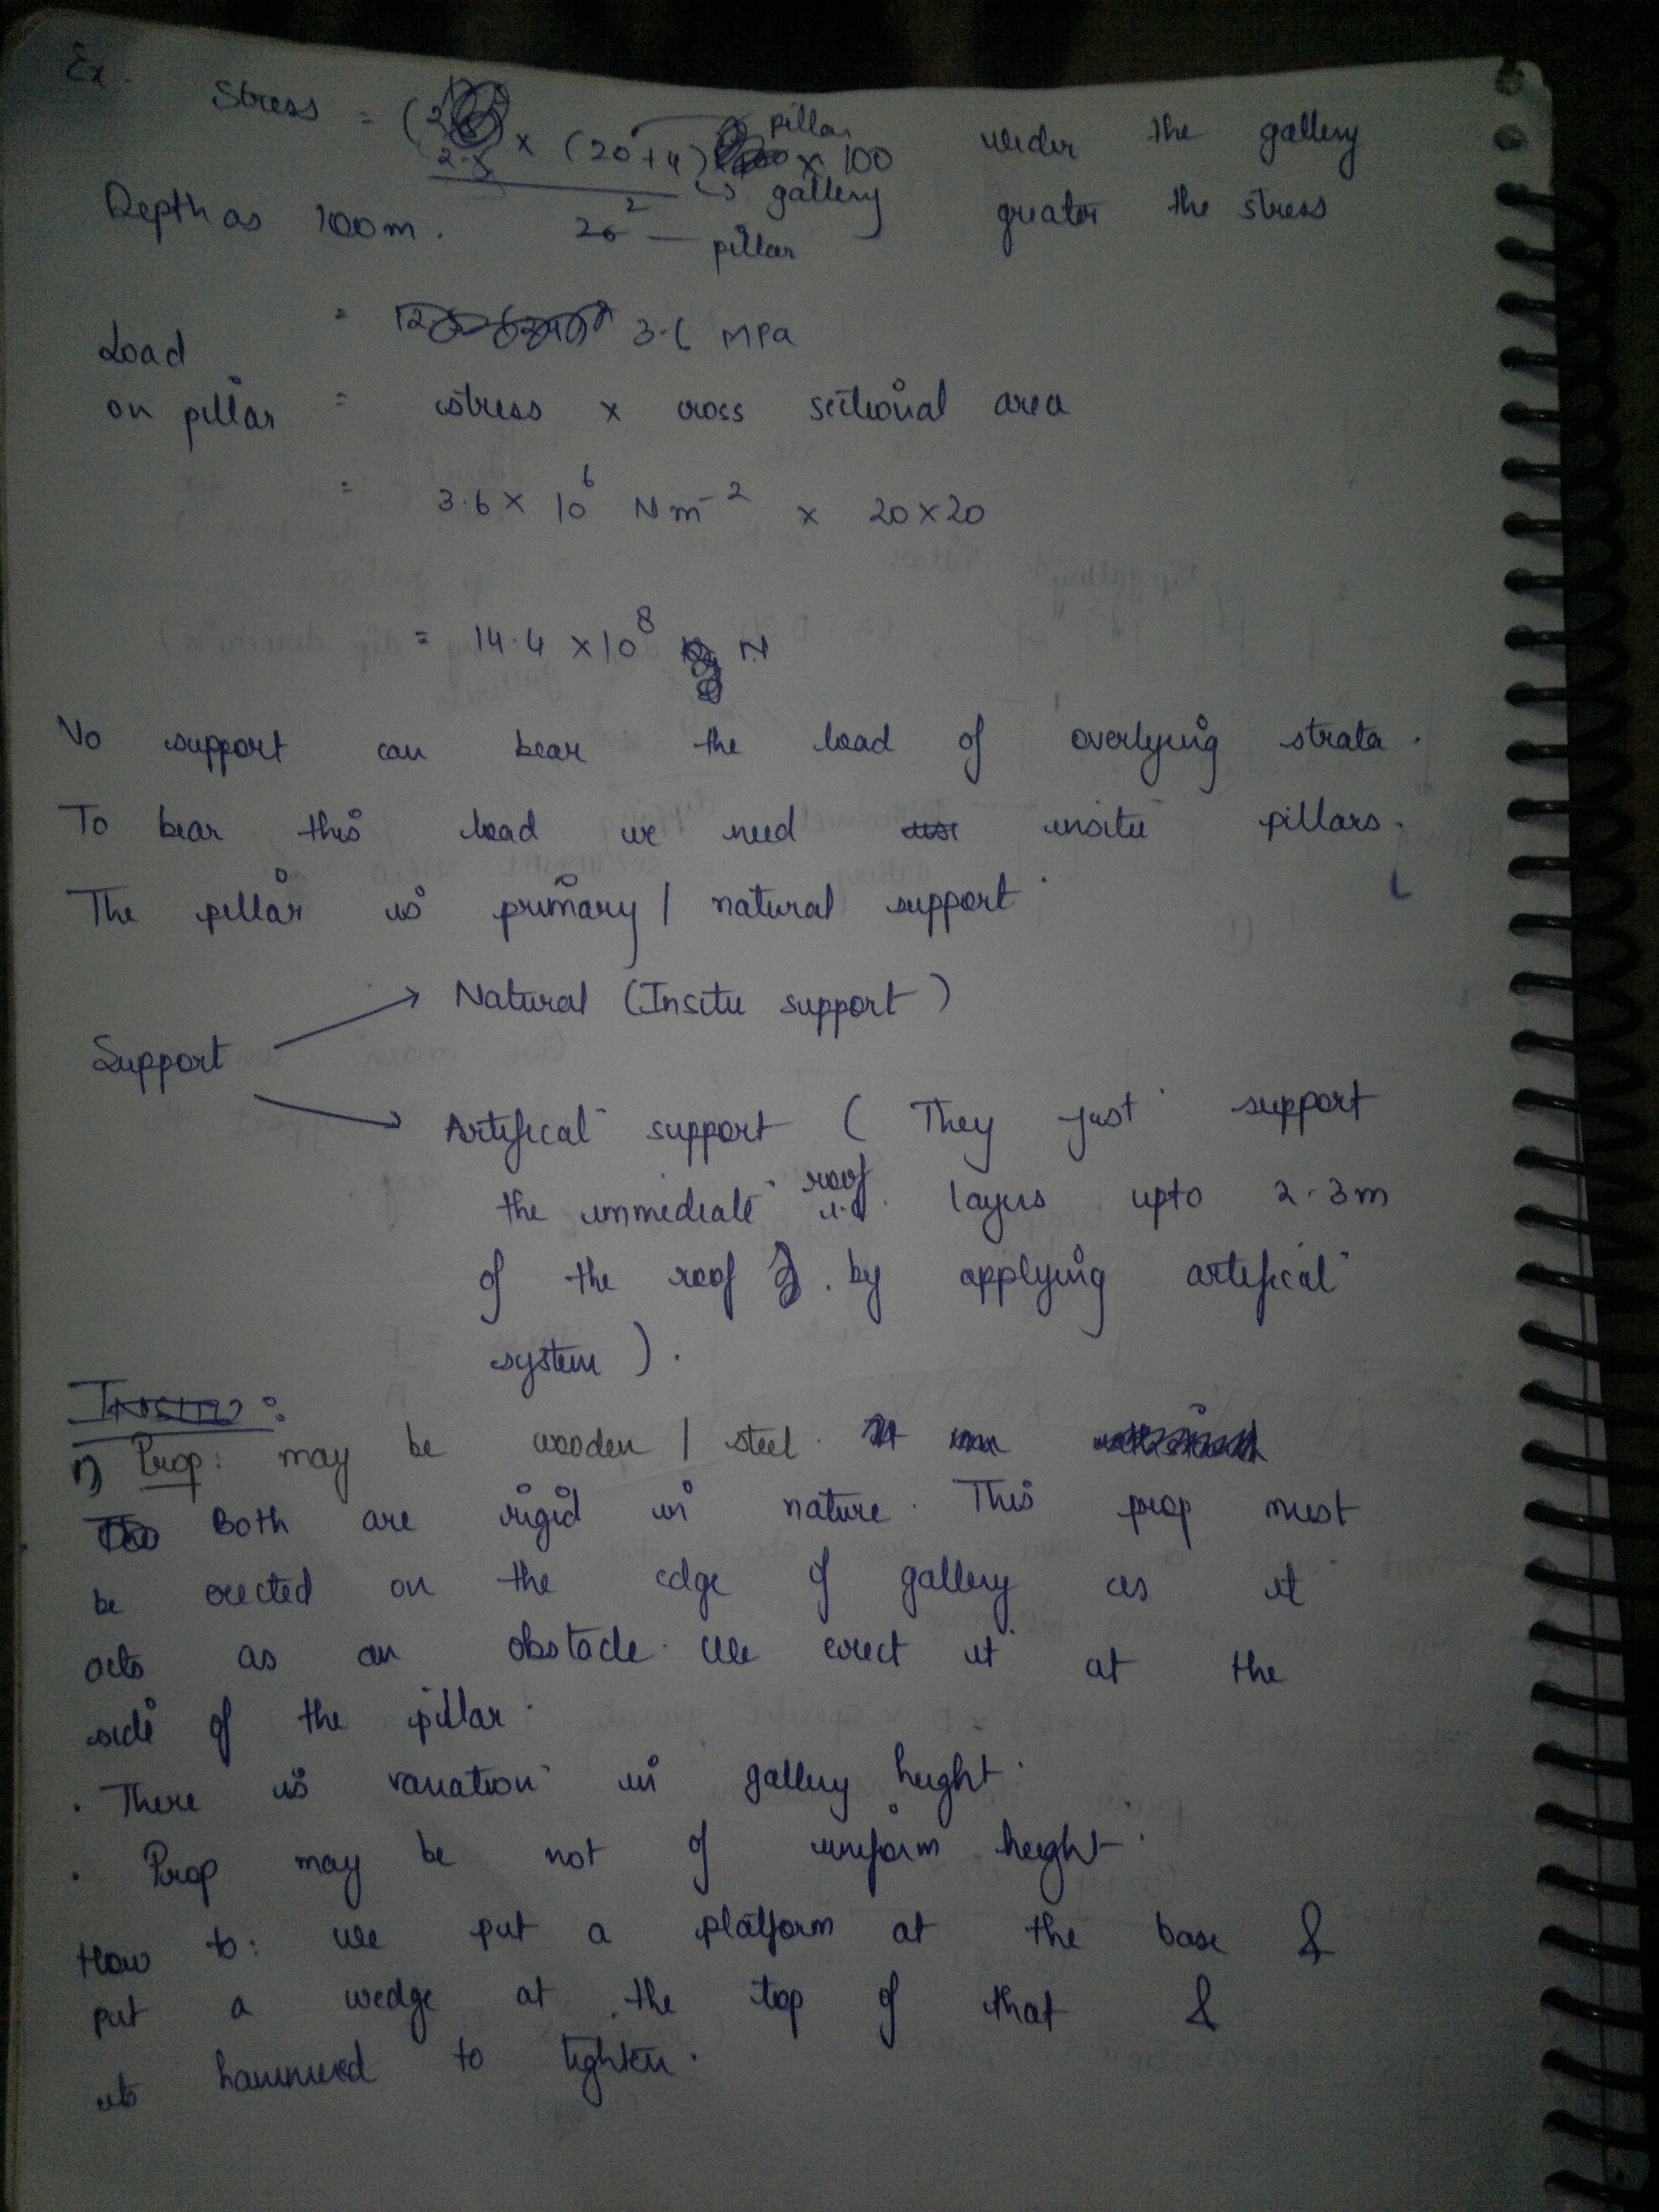 Ex.
Stress = (2.5 × (20+4) pillar × 100 wider the gallery
gallery greater the stress
Depth as 100m. 20² — pillar
= 3.6 MPa
Load
on pillar = stress × cross sectional area
= 3.6 × 10⁶ Nm⁻² × 20×20
= 14.4 ×10⁸ N
No support can bear the load of overlying strata.
To bear this load we need insitu pillars.
The pillar is primary / natural support.
Natural (Insitu support)
Support
Artifical support ( They just support
the immediate roof i.e. layers upto 2-3m
of the roof . by applying artifical
system ).
Insitu :
1) Prop: may be wooden / steel.
Both are rigid in nature. This prop must
be erected on the edge of gallery as it
acts as an obstacle. We erect it at the
side of the pillar.
. There is variation in gallery height.
. Prop may be not of uniform height.
How to: We put a platform at the base &
put a wedge at the top of that &
its hammred to tighten.